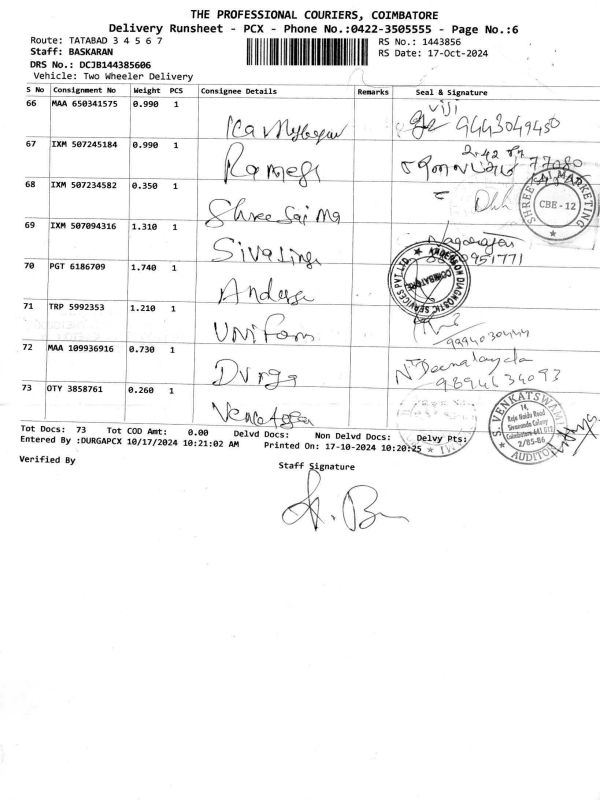 THE PROFESSIONAL COURIERS, COIMBATORE
Delivery Runsheet - PCX - Phone No.:0422-3505555 - Page No.:6
Route: TATABAD 3 4 5 6 7 RS No.: 1443856
Staff: BASKARAN RS Date: 17-Oct-2024
DRS No.: DCJB144385606
Vehicle: Two Wheeler Delivery
S No Consignment No Weight PCS Consignee Details Remarks Seal & Signature
66 MAA 650341575 0.990 1 viji
9443049450
67 IXM 507245184 0.990 1 Ramesh 77080
68 IXM 507234582 0.350 1 Shree Sai Ma
SHREE SAI MARKETING
CBE - 12
69 IXM 507094316 1.310 1 Sivalinga Nagarajan
951771
70 PGT 6186709 1.740 1 Anderson
ANDERSON DIAGNOSTIC SERVICES PVT.LTD.
COIMBATORE
71 TRP 5992353 1.210 1 Uniform
9994030444
72 MAA 109936916 0.730 1 Durga N. Deenadayala
9894634093
73 OTY 3858761 0.260 1
S. VENKATSWAMI
14,
Raja Naidu Road
Sivananda Colony
Coimbatore-641 012
2/85-86
AUDITOR
Tot Docs: 73 Tot COD Amt: 0.00 Delvd Docs: Non Delvd Docs: Delvy Pts:
Entered By :DURGAPCX 10/17/2024 10:21:02 AM Printed On: 17-10-2024 10:20:25
Verified By
Staff Signature